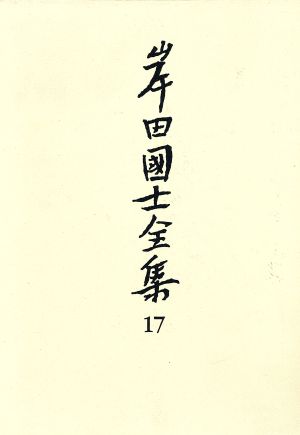 岸田國士全集
17